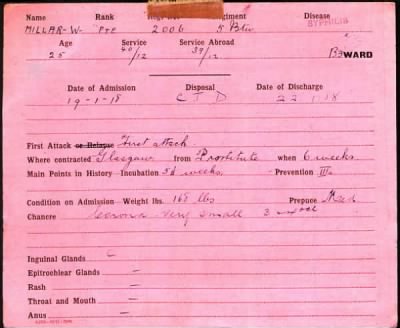 Name Rank Regt. No. Regiment Disease
MILLAR-W- Pte 2006 5 Btn SYPHILIS
Age Service Service Abroad
25 40/12 39/12 B3 WARD
Date of Admission Disposal Date of Discharge
19-1-18 C T D 22 1 18
First Attack or Relapse First attack
Where contracted Glasgow from Prostitute when 6 weeks
Main Points in History Incubation weeks. Prevention
Condition on Admission Weight lbs. 168 lbs Prepuce
Chancre Corona very small 3
Inguinal Glands C
Epitrochlear Glands —
Rash —
Throat and Mouth —
Anus —